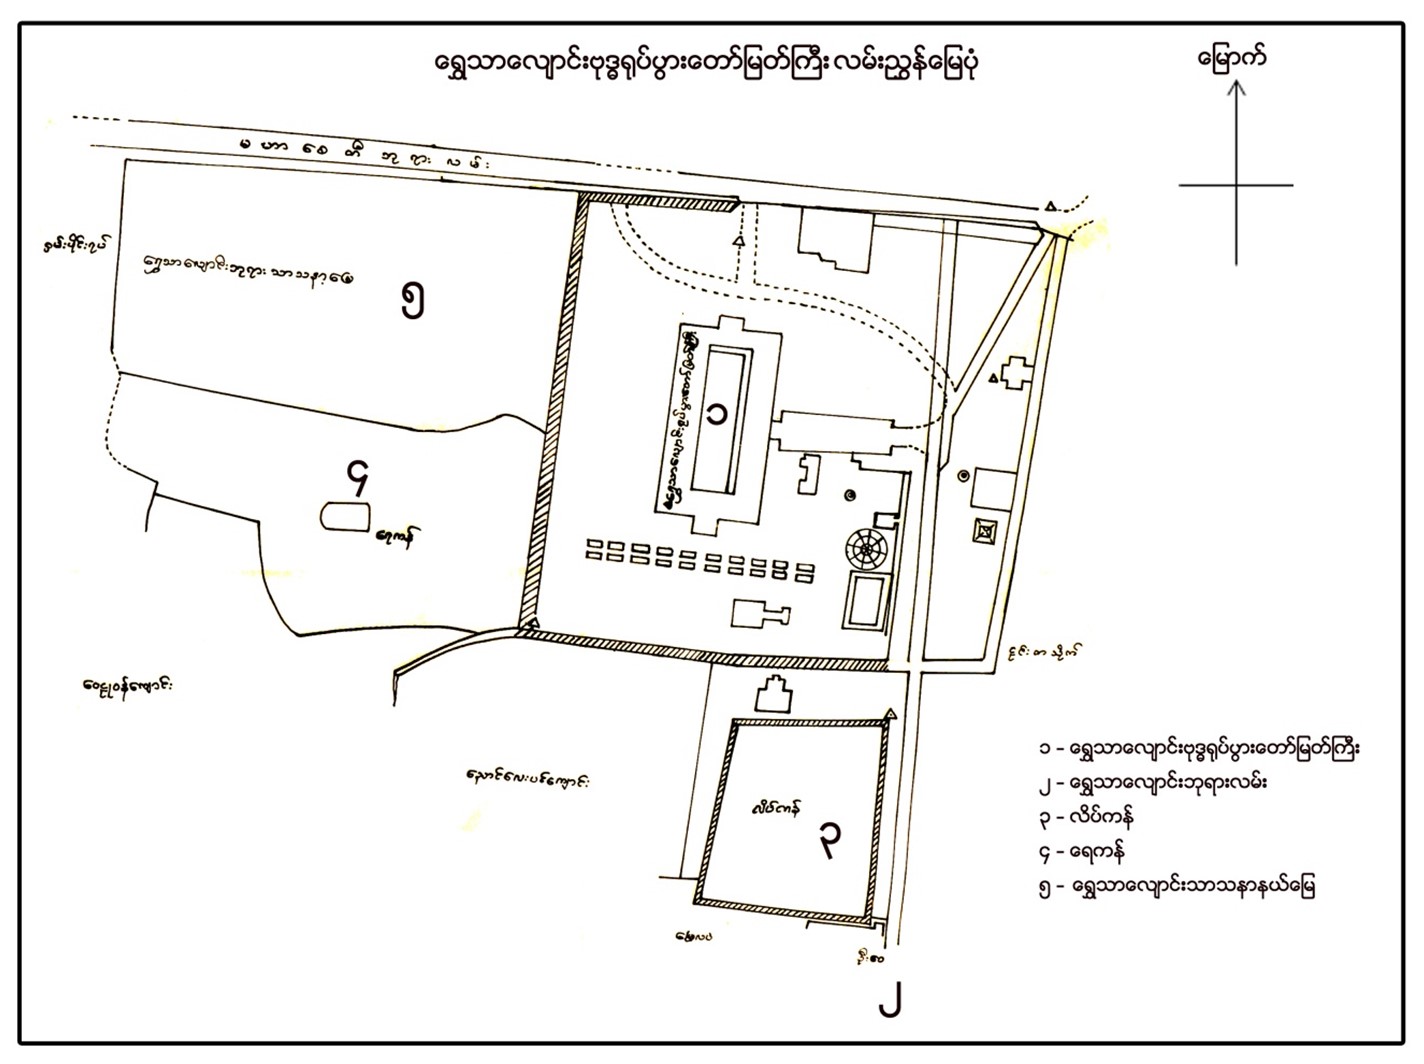 ရွှေသာလျောင်းဗုဒ္ဓရုပ်ပွားတော်မြတ်ကြီး လမ်းညွှန်မြေပုံ
မြောက်
မဟာစေတီဘုရားလမ်း
ရွှေသာလျောင်းဘုရား သာသနာ့မြေ
၅
ရွှေသာလျောင်းရုပ်ပွားတော်မြတ်ကြီး
၁
၄
ရေကန်
ဝေဠုဝန်ကျောင်း
ညောင်လေးပင်ကျောင်း
လိပ်ကန်
၃
မြေလပ်
၂
၁ - ရွှေသာလျောင်းဗုဒ္ဓရုပ်ပွားတော်မြတ်ကြီး
၂ - ရွှေသာလျောင်းဘုရားလမ်း
၃ - လိပ်ကန်
၄ - ရေကန်
၅ - ရွှေသာလျောင်းသာသနာနယ်မြေ